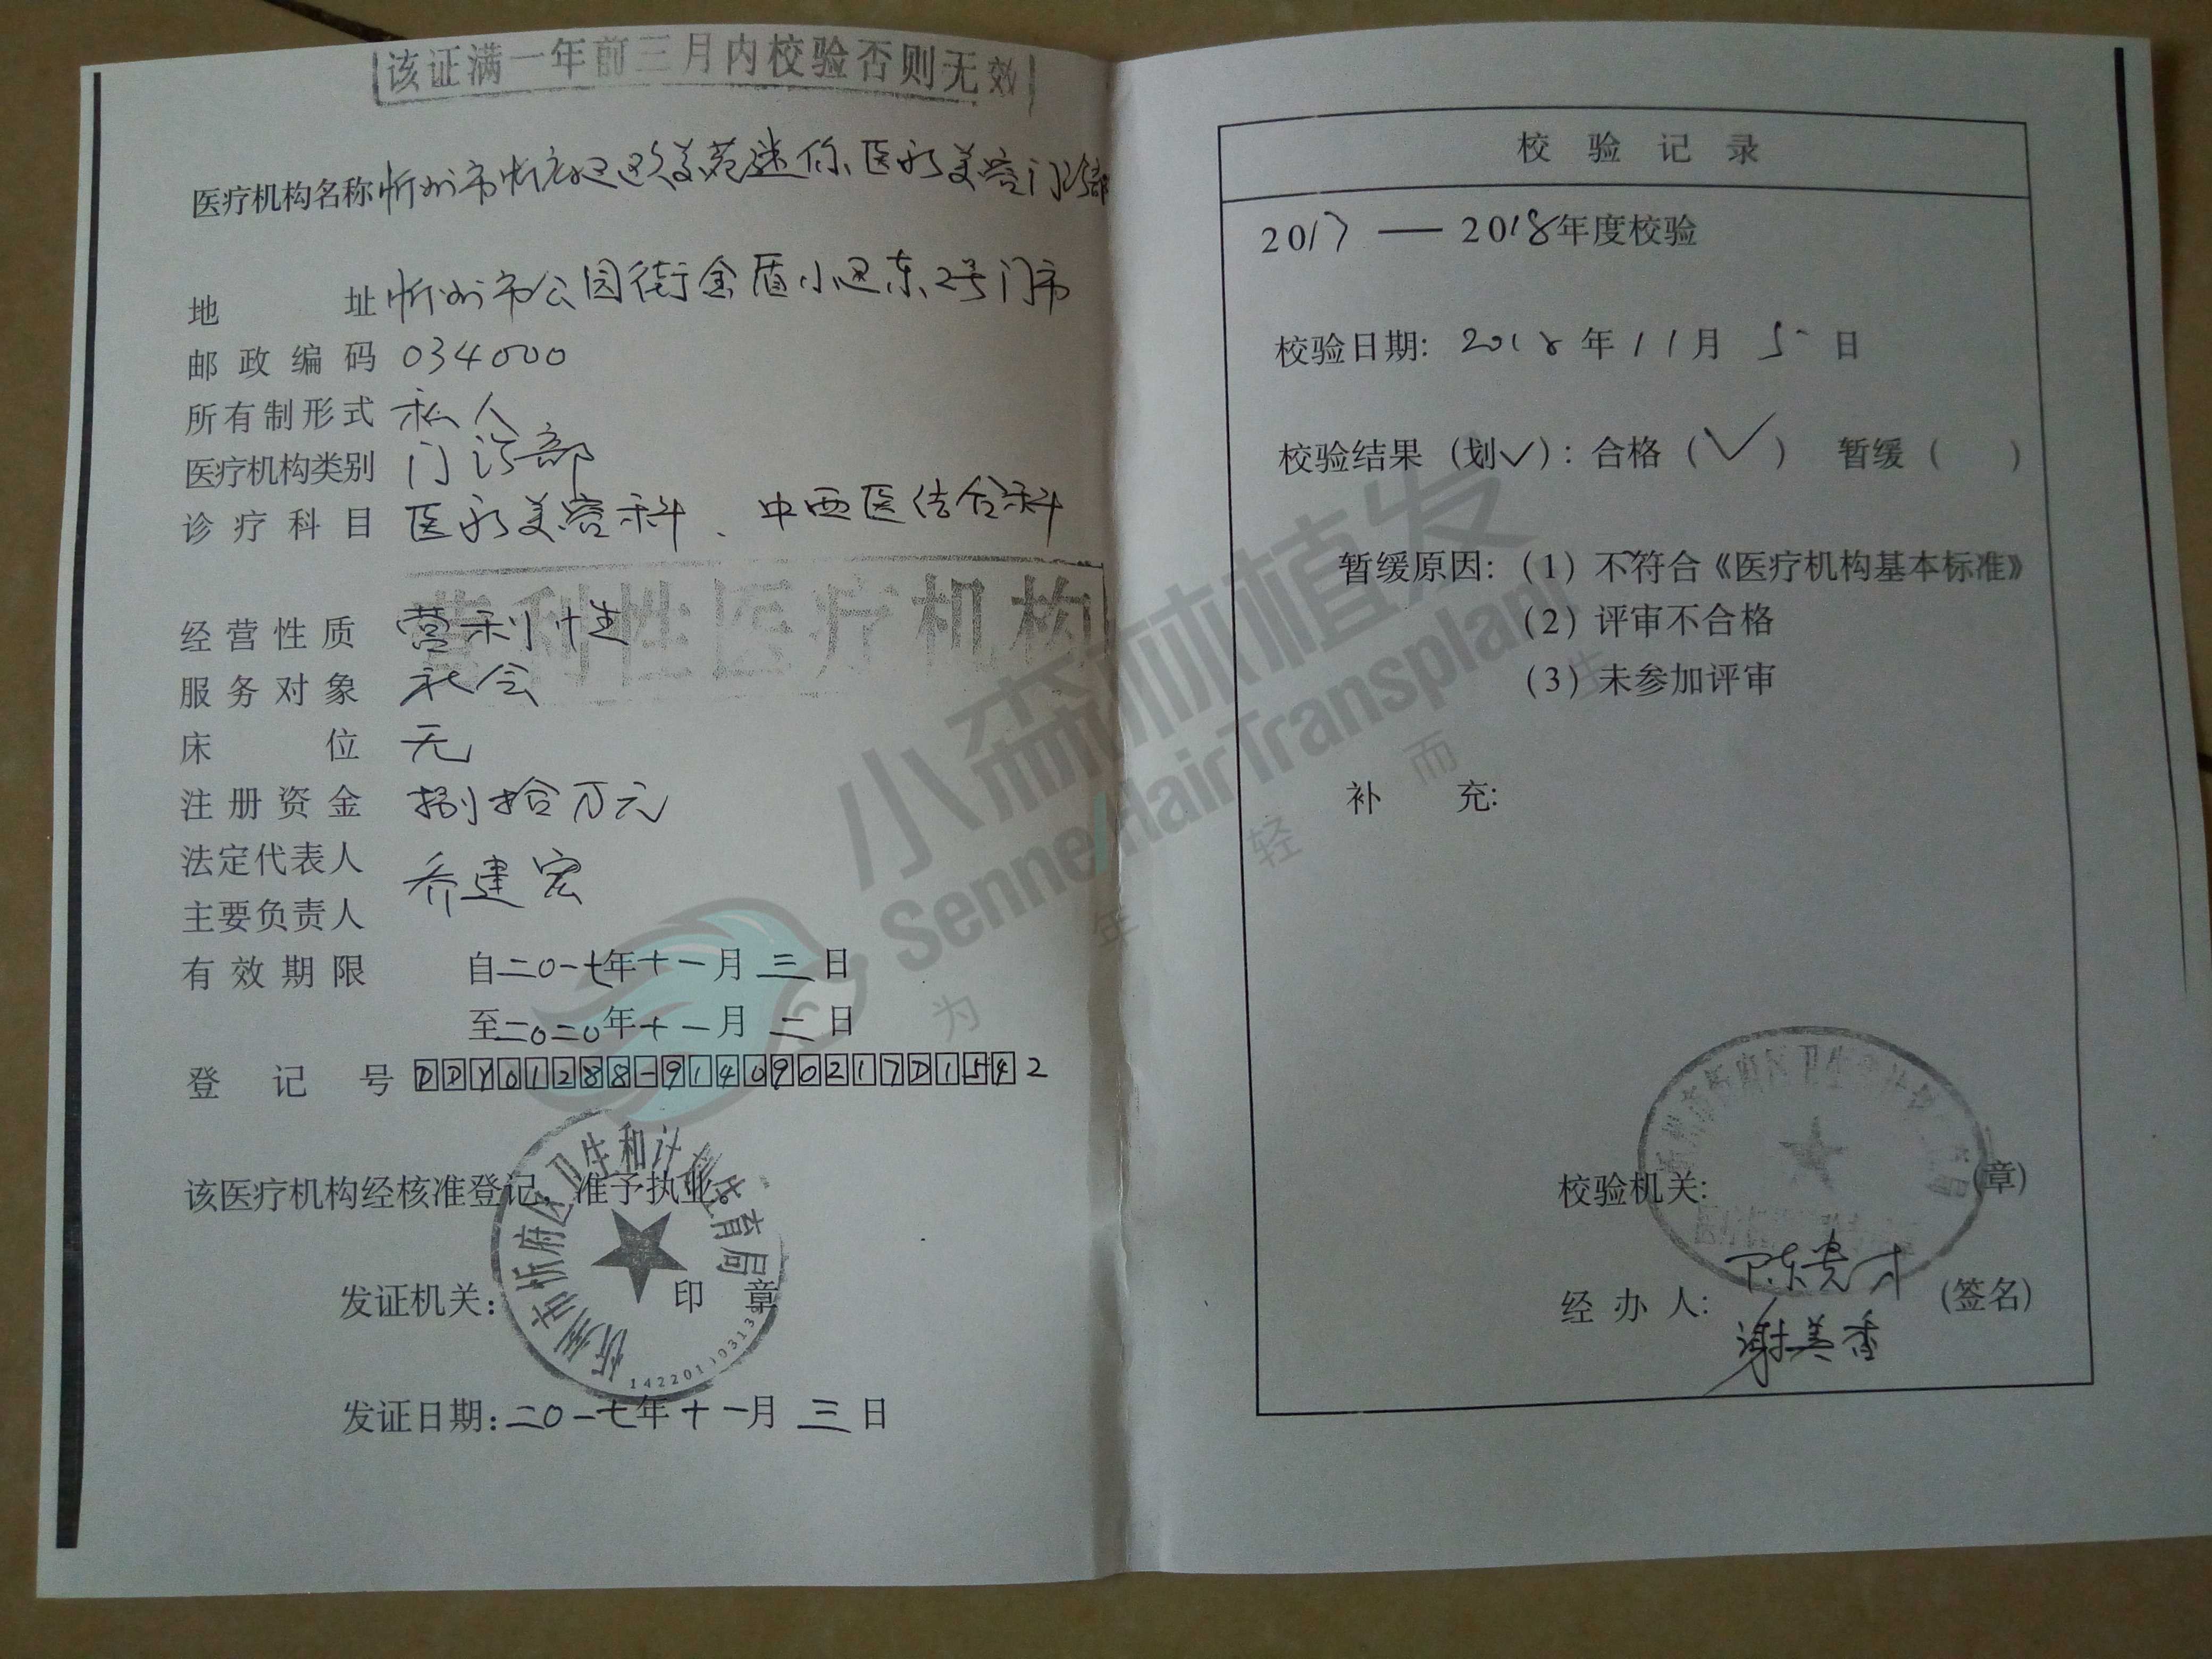 该证满一年前三月内校验否则无效
医疗机构名称 忻州市忻府区美苑迷你医疗美容门诊部
地 址 忻州市公园街金盾小区东2号门市
邮政编码 034000
所有制形式 私人
医疗机构类别 门诊部
诊疗科目 医疗美容科、中西医结合科
营利性医疗机构
经营性质 营利性
服务对象 社会
床 位 无
注册资金 捌拾万元
法定代表人
乔建宏
主要负责人
有效期限 自二〇一七年十一月三日
至二〇二〇年十一月二日
登记号 PDY01288-914090217D1542
该医疗机构经核准登记,准予执业。
忻州市忻府区卫生和计划生育局
发证机关: 印 章
发证日期:二〇一七年十一月三日
校验记录
2017 — 2018年度校验
校验日期: 2018年11月5日
校验结果(划✓):合格(✓) 暂缓( )
暂缓原因:(1)不符合《医疗机构基本标准》
(2)评审不合格
(3)未参加评审
补 充:
校验机关: (章)
经办人: 陈贵才 (签名)
谢美香
小森林植发
Senner HairTransplant
为 年 轻 而 生